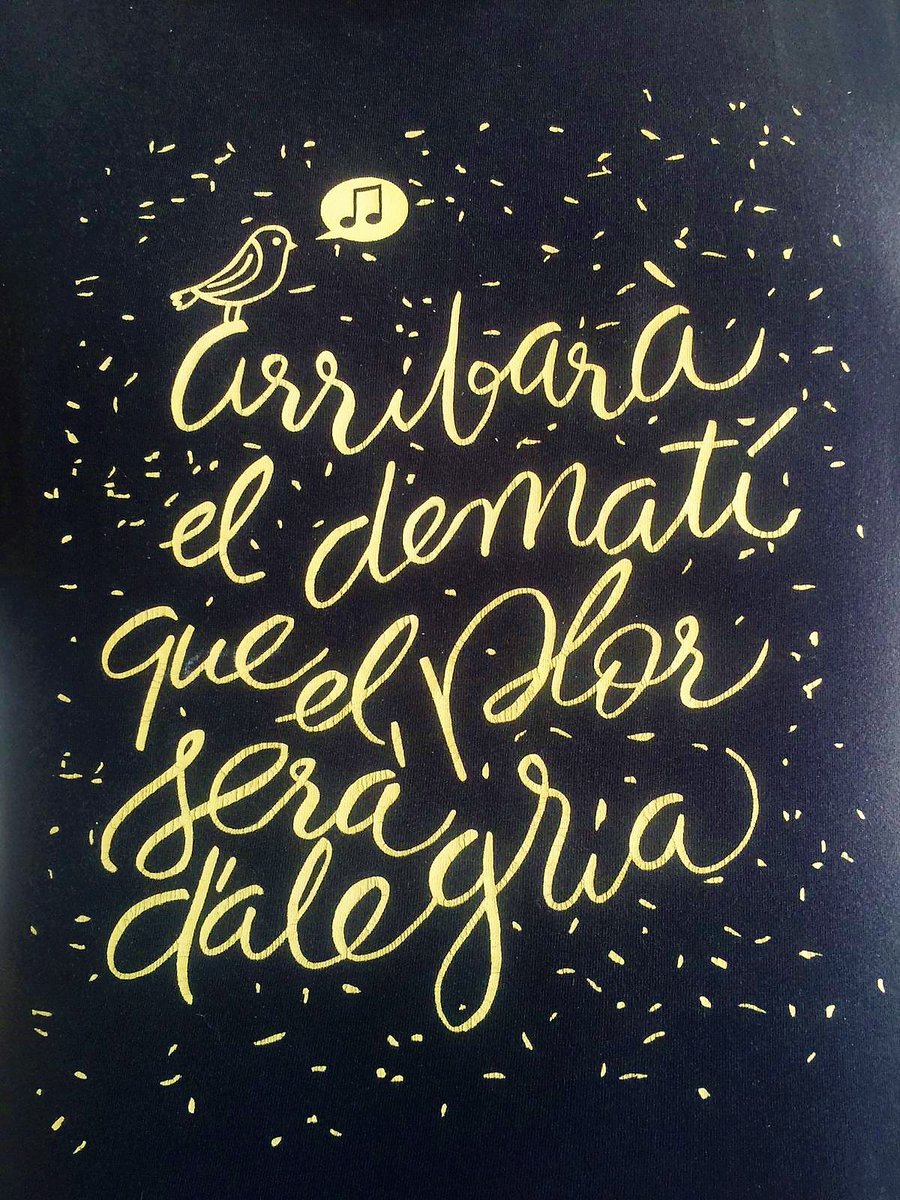 arribarà
el dematí
que el plor
serà
d'alegria